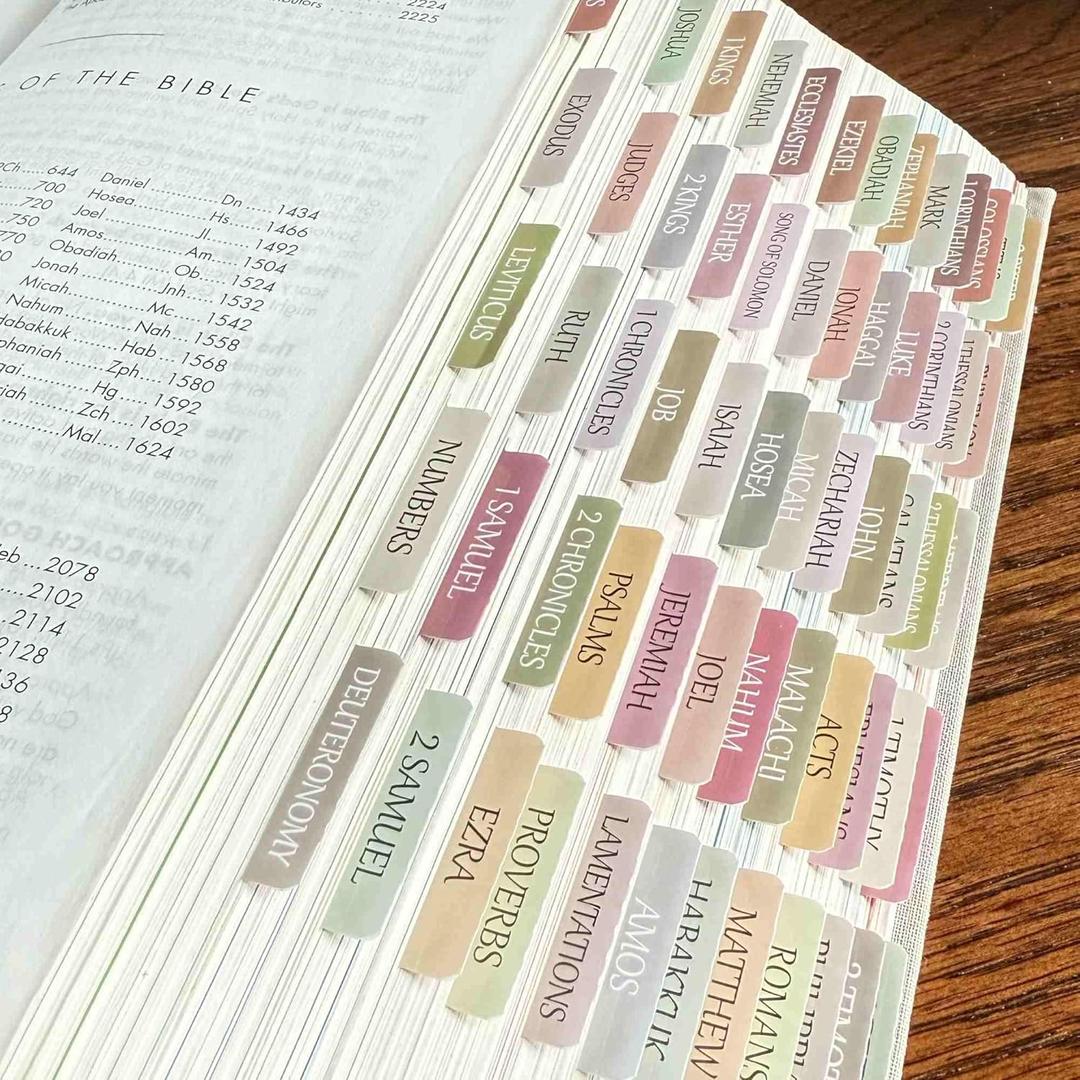 2224
2225
OF THE BIBLE
644 Daniel Dn 1434
700 Hosea Hs 1466
720 Joel Jl 1492
750 Amos Am 1504
Obadiah Ob 1524
Jonah Jnh 1532
Micah Mc 1542
Nahum Nah 1558
Hab 1568
Zph 1580
Hg 1592
Zch 1602
Mal 1624
2078
2102
2114
2128
JOSHUA
1 KINGS
NEHEMIAH
ECCLESIASTES
EZEKIEL
OBADIAH
ZEPHANIAH
MARK
1 CORINTHIANS
COLOSSIANS
EXODUS
JUDGES
2 KINGS
ESTHER
SONG OF SOLOMON
DANIEL
JONAH
HAGGAI
LUKE
2 CORINTHIANS
1 THESSALONIANS
LEVITICUS
RUTH
1 CHRONICLES
JOB
ISAIAH
HOSEA
MICAH
ZECHARIAH
JOHN
GALATIANS
2 THESSALONIANS
NUMBERS
1 SAMUEL
2 CHRONICLES
PSALMS
JEREMIAH
JOEL
NAHUM
MALACHI
ACTS
EPHESIANS
1 TIMOTHY
DEUTERONOMY
2 SAMUEL
EZRA
PROVERBS
LAMENTATIONS
AMOS
HABAKKUK
MATTHEW
ROMANS